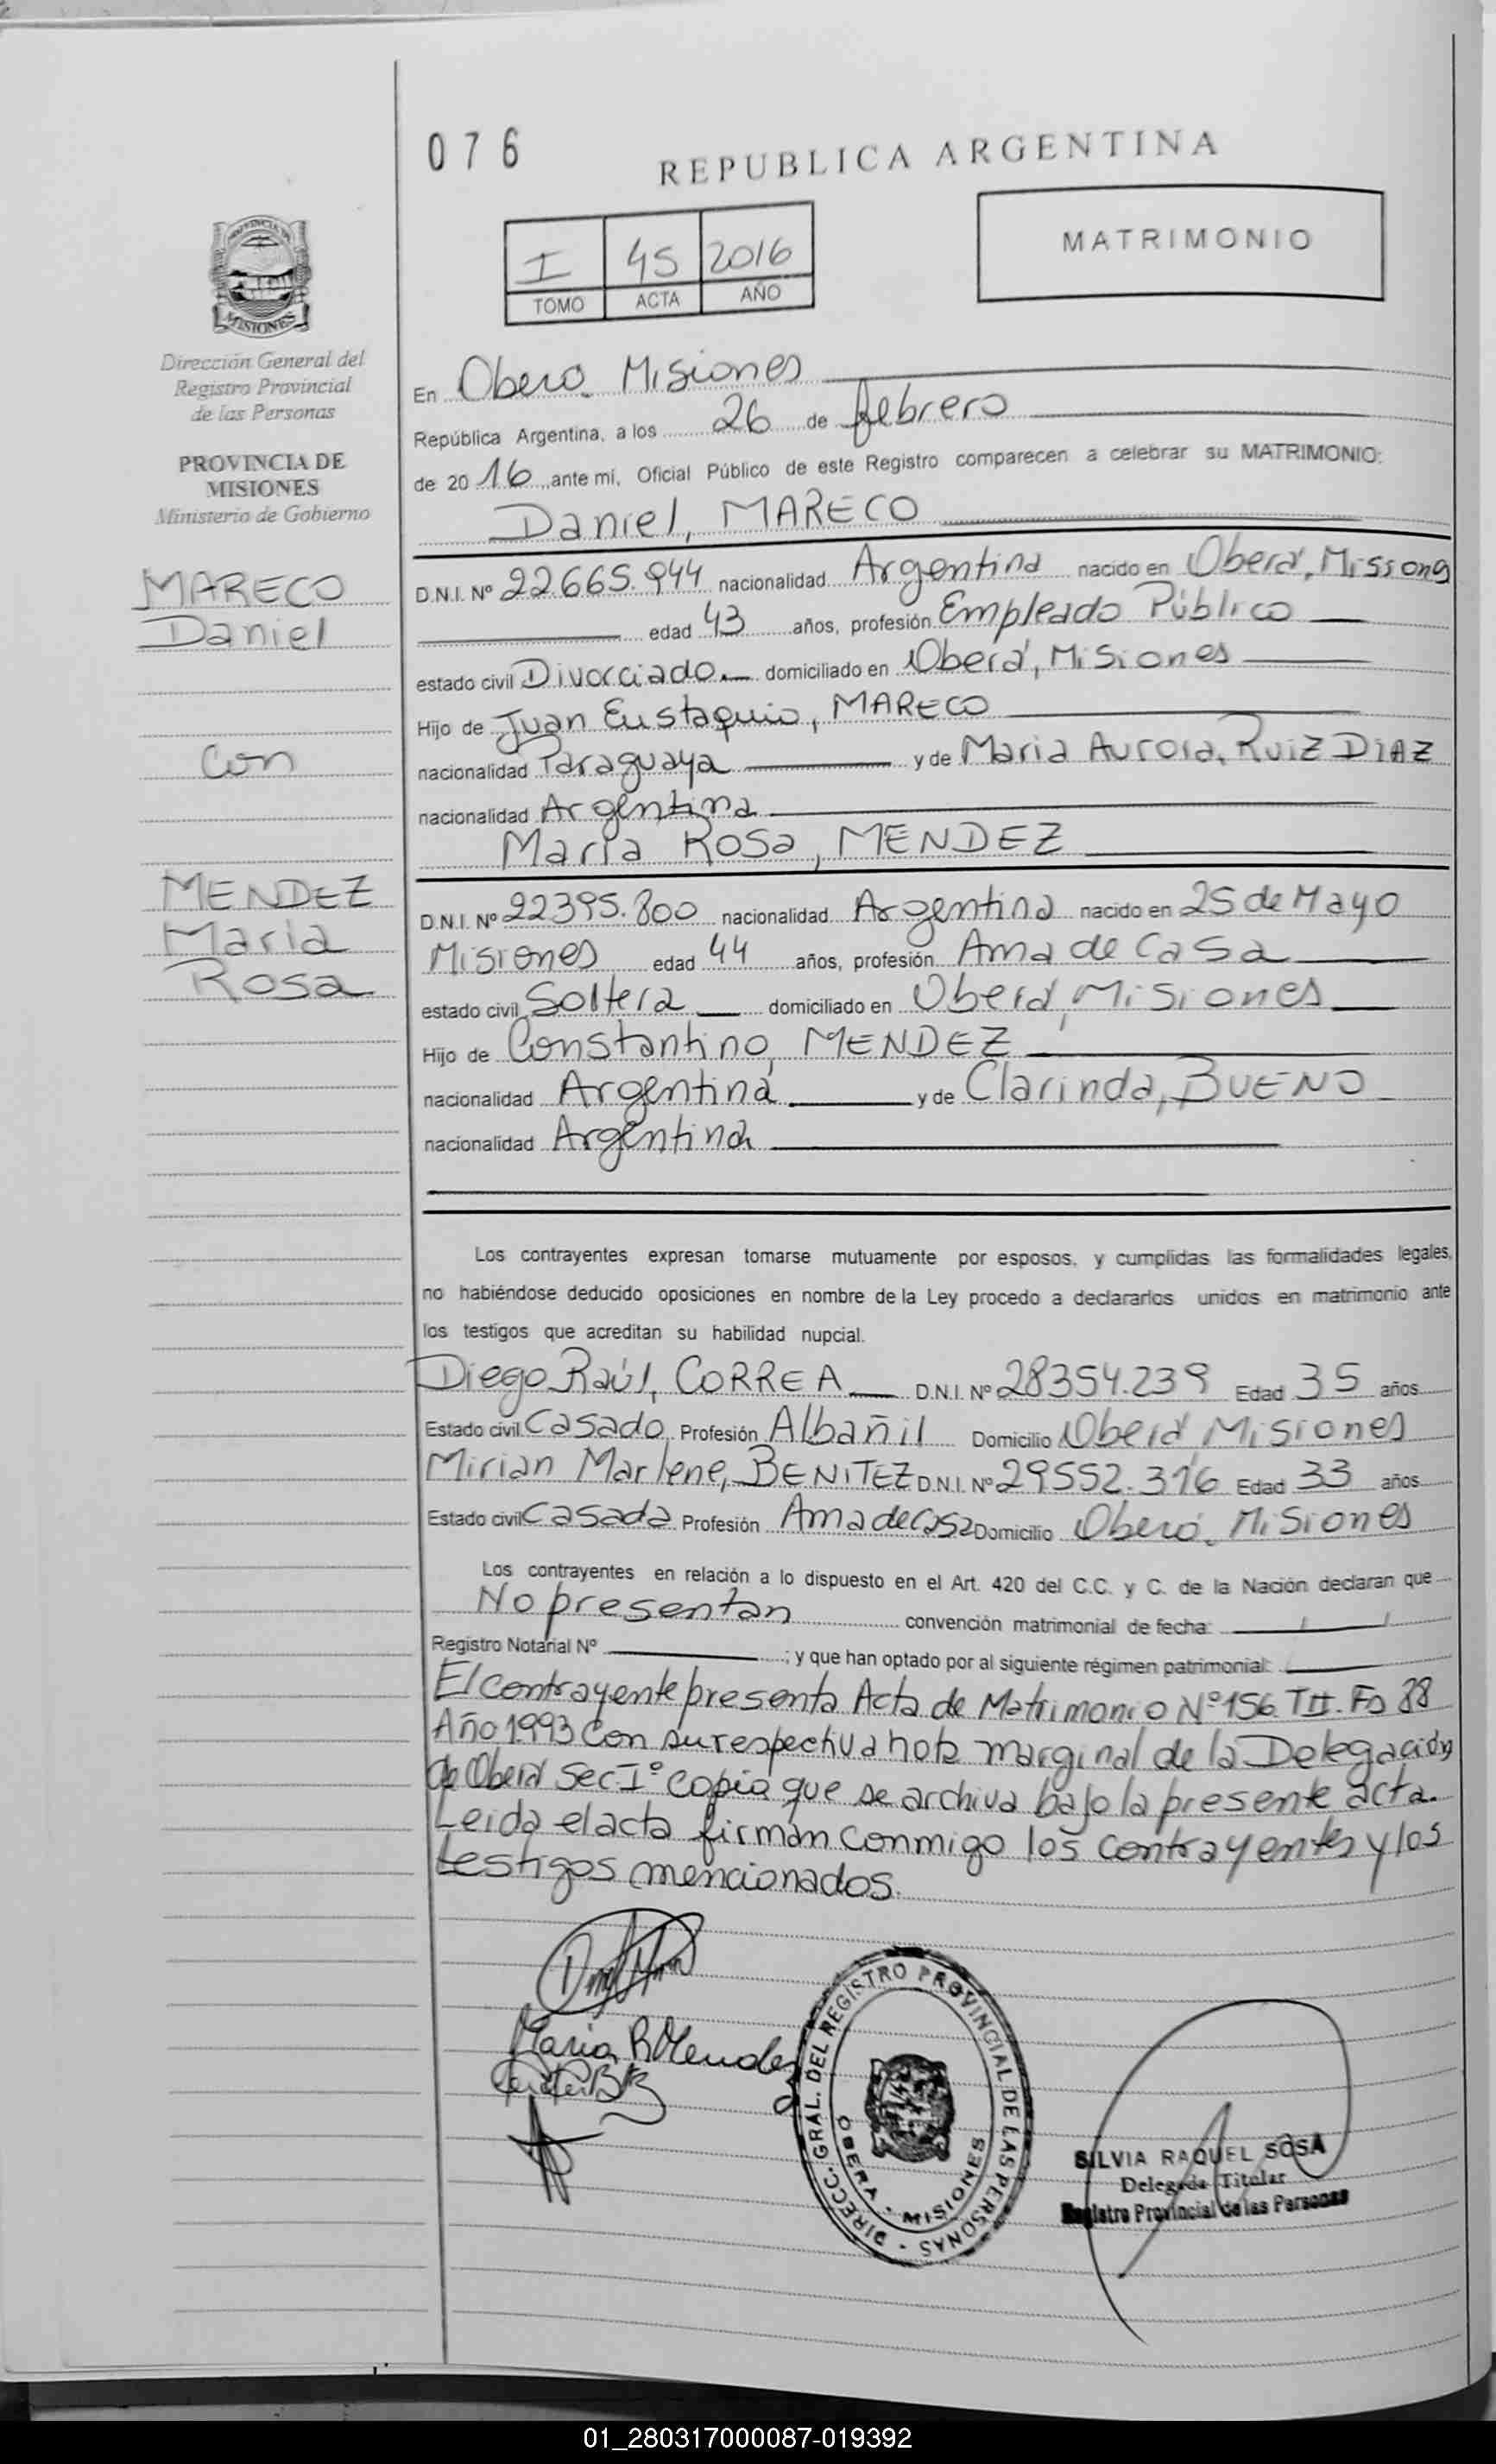 076
REPUBLICA ARGENTINA
I 45 2016
TOMO ACTA AÑO
MATRIMONIO
PROVINCIA DE
MISIONES
Dirección General del
Registro Provincial
de las Personas
PROVINCIA DE
MISIONES
Ministerio de Gobierno
MARECO
Daniel
Con
MENDEZ
Maria
Rosa
En Oberá. Misiones
República Argentina, a los 26 de febrero
de 20 16 ante mi, Oficial Público de este Registro comparecen a celebrar su MATRIMONIO:
Daniel, MARECO
D.N.I. Nº 22665.944 nacionalidad Argentina nacido en Oberá, Missong
edad 43 años, profesión Empleado Público
estado civil Divorciado. domiciliado en Oberá, Misiones
Hijo de Juan Eustaquio, MARECO
nacionalidad Paraguaya y de Maria Aurora, RUIZ DIAZ
nacionalidad Argentina
Maria Rosa, MENDEZ
D.N.I. Nº 22395.800 nacionalidad Argentina nacido en 25 de Mayo
Misiones edad 44 años, profesión Ama de Casa
estado civil Soltera domiciliado en Oberá, Misiones
Hijo de Constantino, MENDEZ
nacionalidad Argentina y de Clarinda, BUENO
nacionalidad Argentina
Los contrayentes expresan tomarse mutuamente por esposos, y cumplidas las formalidades legales,
no habiéndose deducido oposiciones en nombre de la Ley procedo a declararlos unidos en matrimonio ante
los testigos que acreditan su habilidad nupcial.
Diego Raúl, CORREA D.N.I. Nº 28354.239 Edad 35 años
Estado civil Casado Profesión Albañil Domicilio Oberá, Misiones
Mirian Marlene, BENITEZ D.N.I. Nº 29552.316 Edad 33 años
Estado civil Casada Profesión Ama de Casa Domicilio Oberá, Misiones
Los contrayentes en relación a lo dispuesto en el Art. 420 del C.C. y C. de la Nación declaran que
No presentan convención matrimonial de fecha: / /
Registro Notarial Nº ; y que han optado por al siguiente régimen patrimonial:
El contrayente presenta Acta de Matrimonio Nº 156. TII. Fº 88
Año 1.993 Con su respectiva nota marginal de la Delegación
de Oberá Sec. Iº copia que se archiva bajo la presente acta.
Leida el acta firman conmigo los contrayentes y los
testigos mencionados.
Maria R Mendez
DIRECC. GRAL. DEL REGISTRO PROVINCIAL DE LAS PERSONAS
OBERA - MISIONES
SILVIA RAQUEL SOSA
Delegada Titular
Registro Provincial de las Personas
01_280317000087-019392